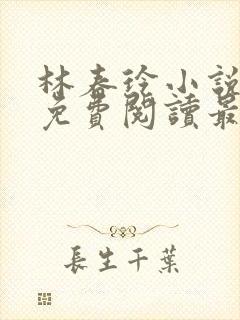 林春徐小說
免費閱讀最
長生千葉